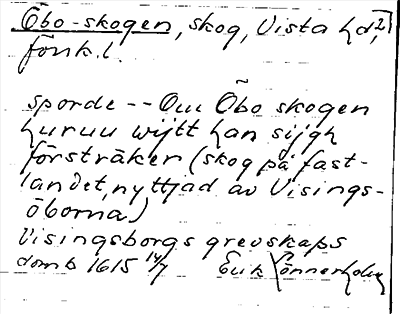 Õbo-skogen, skog, Vista hd,
Jönk.l.
sporde -- Om Õbo skogen
huruu wijtt han sijgh
försträker (skog på fast-
landet, nyttjad av Visings-
öborna)
Visingsborgs grevskaps
domb 1615 14/7 Erik